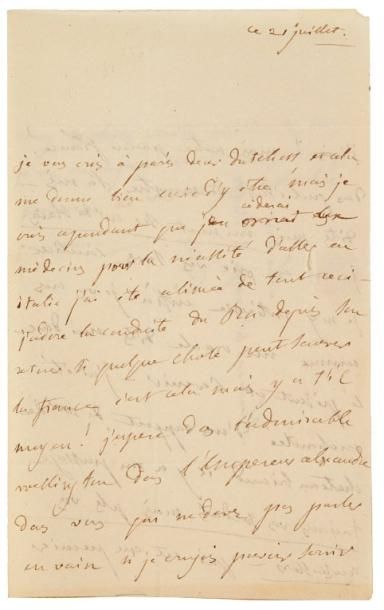 ce 21 juillet.
je vous crois à paris dear dutchess et cela
me donne bien envie d'y être mais je
crois cependant que je céderai aux
médecins pour la nécessité d'aller en
italie j'ai été abimée de tout ceci
j'adore la conduite du Roi depuis son
retour si quelque chose peut sauver
la france c'est cela mais y a t'il
moyen! j'espère dans l'admirable
wellington dans l'Empereur alexandre
dans vous qui ne devez pas parler
en vain si je croyois pouvoir servir